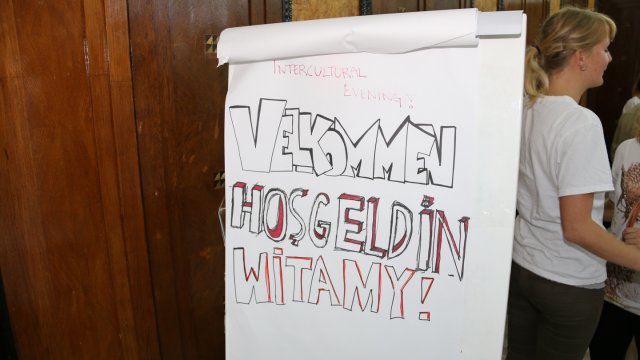 INTERCULTURAL
EVENING!
VELKOMMEN
HOŞGELDİN
WITAMY!